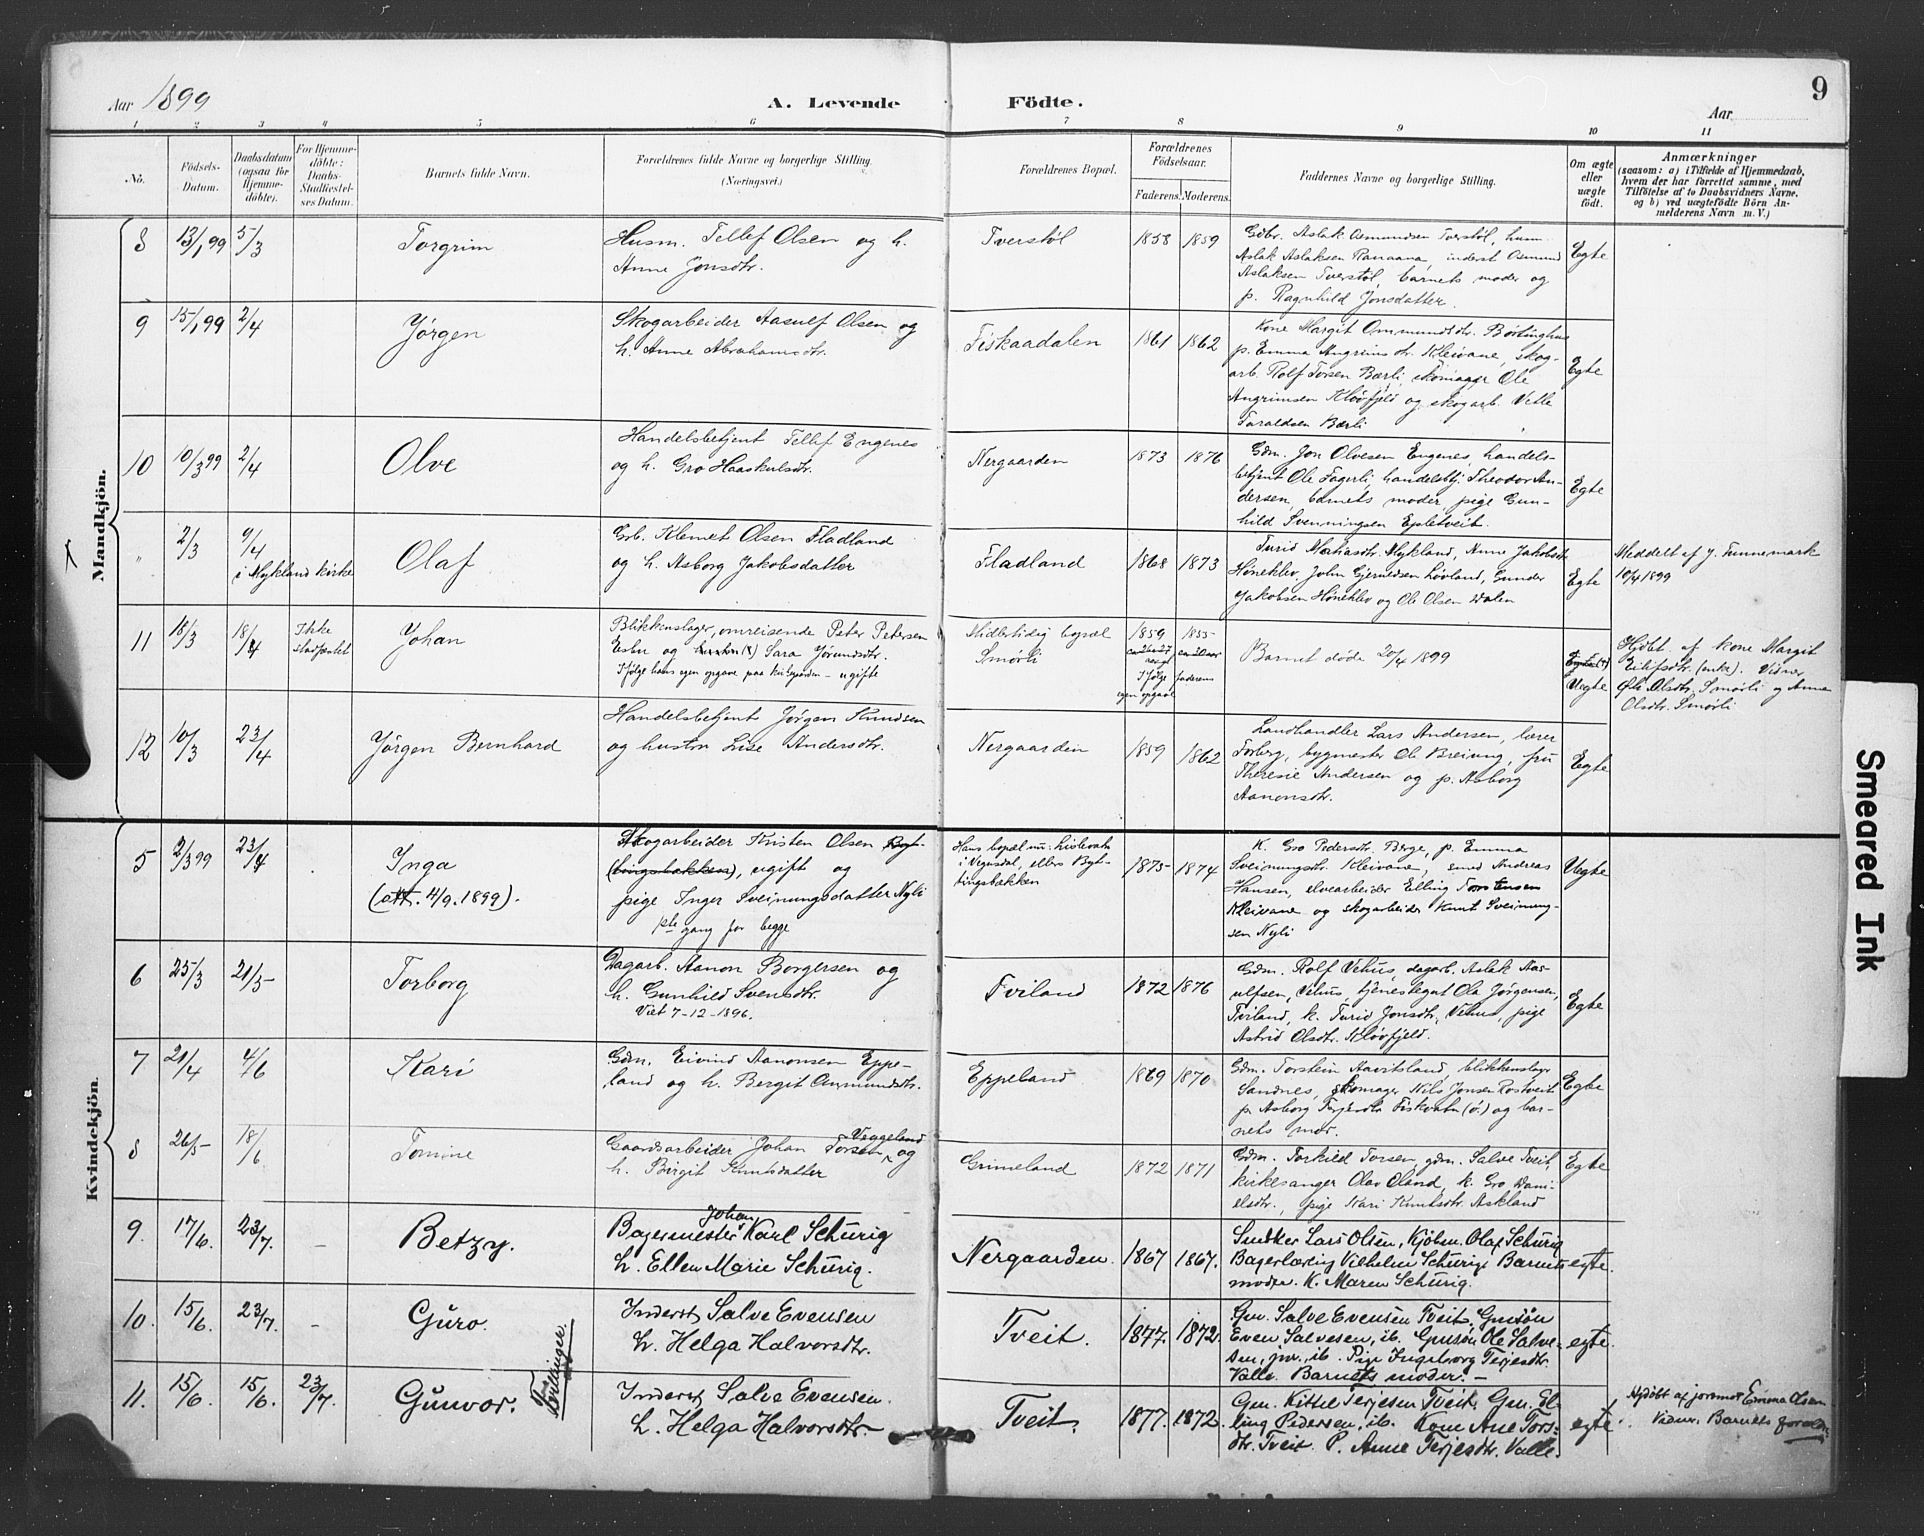 Aar 1899
A. Levende Födte.
Aar
9
1 2 3 4 5 6 7 8 9 10 11
No.
Födsels-Datum.
Daabsdatum (ogsaa for Hjemme-döbte).
For Hjemme-döbte: Daabs-Stadfæstel-ses Datum.
Barnets fulde Navn.
Forældrenes fulde Navne og borgerlige Stilling. (Næringsvei.)
Forældrenes Bopæl.
Forældrenes Födselsaar.
Faderens. Moderens.
Faddernes Navne og borgerlige Stilling.
Om ægte eller uægte födt.
Anmærkninger
(saasom: a) i Tilfælde af Hjemmedaab,
hvem der har forrettet samme, med
Tilföielse af to Daabsvidners Navne,
og b) ved uægtefödte Börn An-
melderens Navn m. V.)
Mandkjön.
8 13/1 99 5/3 Torgrim
Husm. Tellef Olsen og h.
Anne Jonsdtr.
Tverstøl 1858 1859
Gdbr. Aslak Osmundsen Tverstøl, husm.
Aslak Aslaksen Ranaana, inderst Osmund
Aslaksen Tverstøl, barnets moder og
p. Ragnhild Jonsdatter.
Egte
9 15/1 99 2/4 Jørgen
Skogarbeider Aasulf Olsen og
h. Anne Abrahamsdtr.
Fiskaadalen 1861 1862
Kone Margit Ommundsdtr. Børtinghus
p. Emma Angrimsdtr. Kleivane, skog-
arb. Rolf Torsen Bærli, skomager Ole
Angrimsen Kløvfjeld og skogarb. Vetle
Taraldsen Bærli
Egte
10 10/3 99 2/4 Olve
Handelsbetjent Tellef Engenes
og h. Gro Haaskulsdtr.
Nergaarden 1873 1876
Gdm. Jon Olvesen Engenes, handels-
betjent Ole Fagerli, handelsbtj. Theodor An-
dersen, barnets moder, pige Gun-
hild Svenningsen Epletveit.
Egte
" 2/3 9/4 i Mykland kirke Olaf
Grb. Klemet Olsen Fladland
og h. Asborg Jakobsdatter
Fladland 1868 1873
Turid Mathasdtr. Mykland, Anne Jakobsdtr
Høneklev, John Gjermundsen Løvland, Gunder
Jakobsen Høneklev og Ole Olsen Dalen
Egte
Meddelt af J. Tunnemark
10/4 1899
11 18/3 18/4 Ikke stadfæstet Johan
Blikkenslager, omreisende Peter Petersen
Ester og hustru (?) Sara Jørundsdtr.
Ifølge hans egen opgave paa kirkegaarden - ugifte
Midlertidig bopæl
Smørli
1859 1855
Ifølge faderens
egen opgave
Barnet døde 20/4 1899
Uegte
Hjdbt. af kone Margit
Eilefsdtr. (enke). Vidner
Olsdtr. Smørli og Anne
Olsdtr. Smørli
12 10/3 23/4 Jørgen Bernhard
Handelsbetjent Jørgen Knudsen
og hustru Lise Andersdtr.
Nergaarden 1859 1862
Landhandler Lars Andersen, lærer
Torberg, bygmester Ole Breiung, fru
Theresie Andersen og p. Asborg
Aanonsdtr.
Egte
Kvindekjön.
5 2/3 99 23/4 Inga
(att. 4/9.1899).
Skogarbeider Kristen Olsen Byt-
(tingsbakken), ugift og
pige Inger Sveinungsdatter Nyli
1ste gang for begge
Hans bopæl nu: hislevatn
i Vegusdal, ellers Byt-
tingsbakken
1875 1874
K. Gro Pedersdtr. Berge, p. Emma
Sveinungsdtr. Kleivane, smed Andreas
Hansen, elvearbeider Elling Torstensen
Kleivane og skogarbeider Knut Sveinung-
sen Nyli
Uegte
6 25/3 21/5 Torborg
Dagarb. Aanon Borgersen og
h. Gunhild Svensdtr.
Viet 7-12-1896.
Tviland 1872 1876
Gdm. Rolf Vehus, dagarb. Aslak Aas-
ulfsen, Vehus, tjenestegut Ole Jørgensen,
Tviland, k. Turid Jonsdtr, Vehus, pige
Astrid Olsdtr. Kløvfjeld.
Egte
7 21/4 4/6 Kari
Gdm. Eivind Aanonsen Eppe-
land og h. Bergit Ommundsdtr.
Eppeland 1869 1870
Gdm. Torstein Aavitsland, blikkenslager
Sandnes, skomager Nils Jonsen Rostveit
p. Asborg Terjesdtr. Fiskvatn (ø.) og bar-
nets mor.
Egte
8 26/5 18/6 Tomine
Gaardsarbeider Johan Torsen Veggeland og
h. Birgit Knutsdatter
Grimeland 1872 1871
Gdm. Torkild Torsen, gdm. Salve Tveit,
kirkesanger Olav Oland, k. Gro Dani-
elsdtr., pige Kari Knutsdtr. Askland
Egte
9. 17/6. 23/7. - Betzy.
Bagermester Johan Karl Schurig
h. Ellen Marie Schurig.
Nergaarden. 1867 1867.
Snedker Lars Olsen, Kjøbm. Olaf Schurig
Bagerlærling Vilhelm Schurig, Barnets
moder. K. Maren Schurig.
egte.
10. 15/6. 23/7. - Guro.
Inderst, Salve Evensen
h. Helga Halvorsdtr.
Tveit. 1877. 1872.
Gm. Salve Evensen Tveit, Gmsøn
Even Salvesen, ib. Gmsøn Ole Salve-
sen, jnr., ib. Pige Ingeborg Terjesdtr.
Valle. Barnets moder. -
egte.
Tvillinger.
11. 15/6. 15/6. 23/7. Gunvor.
Inderst, Salve Evensen.
h. Helga Halvorsdtr. -
Tveit. 1877. 1872.
Gm. Kittel Terjesen Tveit, Gm. El-
ling Pedersen, ib. Kone Ane Tors-
dtr. Tveit. P. Anne Terjesdtr. Valle.
egte.
Hjdøbt af jormor Emma Olsen
Vidner. Barnets forældre
Smeared Ink